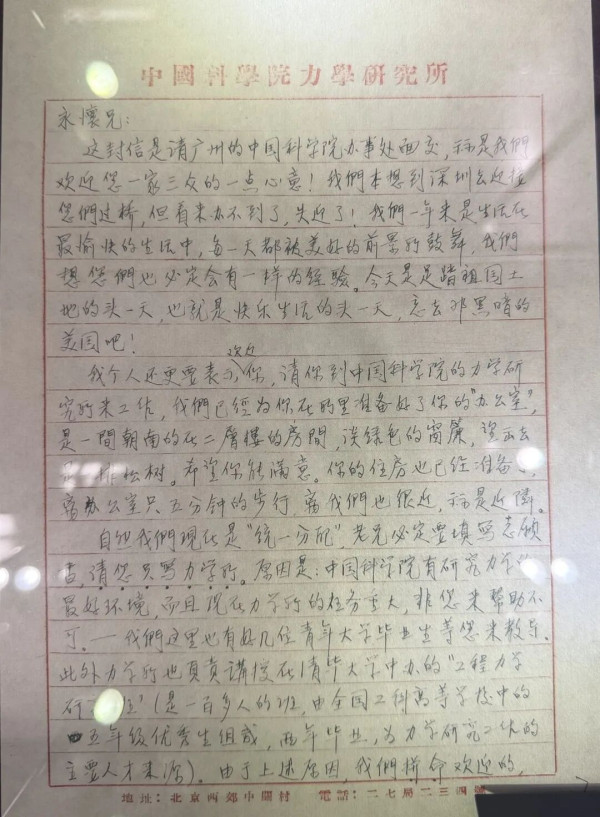 中國科學院力學研究所
永懷兄：
这封信是請广州的中国科学院办事处面交，祘是我們
欢迎您一家三众的一点心意！我們本想到深圳去迎接
您們过桥，但看来办不到了，失迎了！我們一年来是生活在
最愉快的生活中，每一天都被美好的前景所鼓舞，我們
想您們也必定会有一样的经验。今天是足踏祖国土
地的头一天，也就是快乐生活的头一天，忘去那黑暗的
美国吧！
我个人还更要表示你，请你到中国科学院的力学研
究所来工作，我們已經为你在所里准备好了你的“办公室”，
是一間朝南的在二層樓的房間，淡绿色的窗簾，望出去
排松树。希望你能满意。你的住房也已经准备
离办公室只五分钟的步行，离我們也很近，祘是近隣。
自然我們現在是“统一分配”，老兄必定要填写志願
书，请您只写力学所。原因是：中国科学院有研究力学的
最好环境，而且现在力学所的任务重大，非您来帮助不
可。—我們这里也有好几位青年大学毕业生等您来教导。
此外力学所也負責講授在清华大学中办的“工程力学
研 班”（是一百多人的班，由全国工科高等学校中的
五年级优秀生組成，两年毕业，为力学研究工作的
主要人才来源）。由于上述原因，我們拼命欢迎的，
地址：北京西郊中關村 電話：二七局二三四號